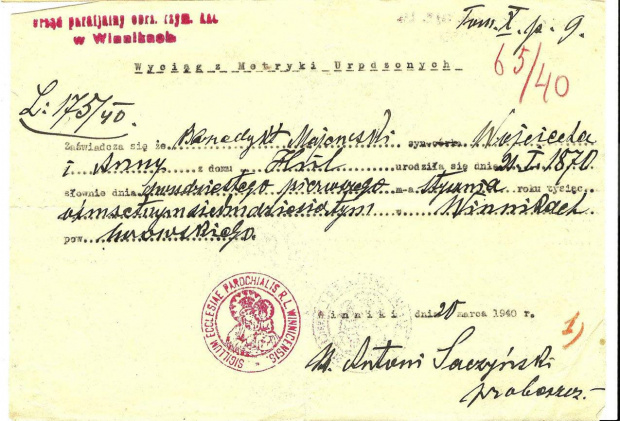 Urząd parafjalny obrz. rzym. kat.
w Winnikach
Tom. X. p. 9.
65/40
Wyciąg z Metryki Urodzonych
L: 175/40.
Zaświadcza się że Benedykt Majewski syn córka Wojciecha
i Anny z domu Hul urodziła się dnia 21.I.1870
słownie dnia dwudziestego pierwszego m-a stycznia roku tysiąc
ośmsetnym siedmdziesiątym w Winnikach
pow. lwowskiego.
SIGILLUM ECCLESIAE PAROCHIALIS R.L. WINNICENSIS
Winniki dnia 20 marca 1940 r.
1)
Antoni Saczyński
proboszcz.